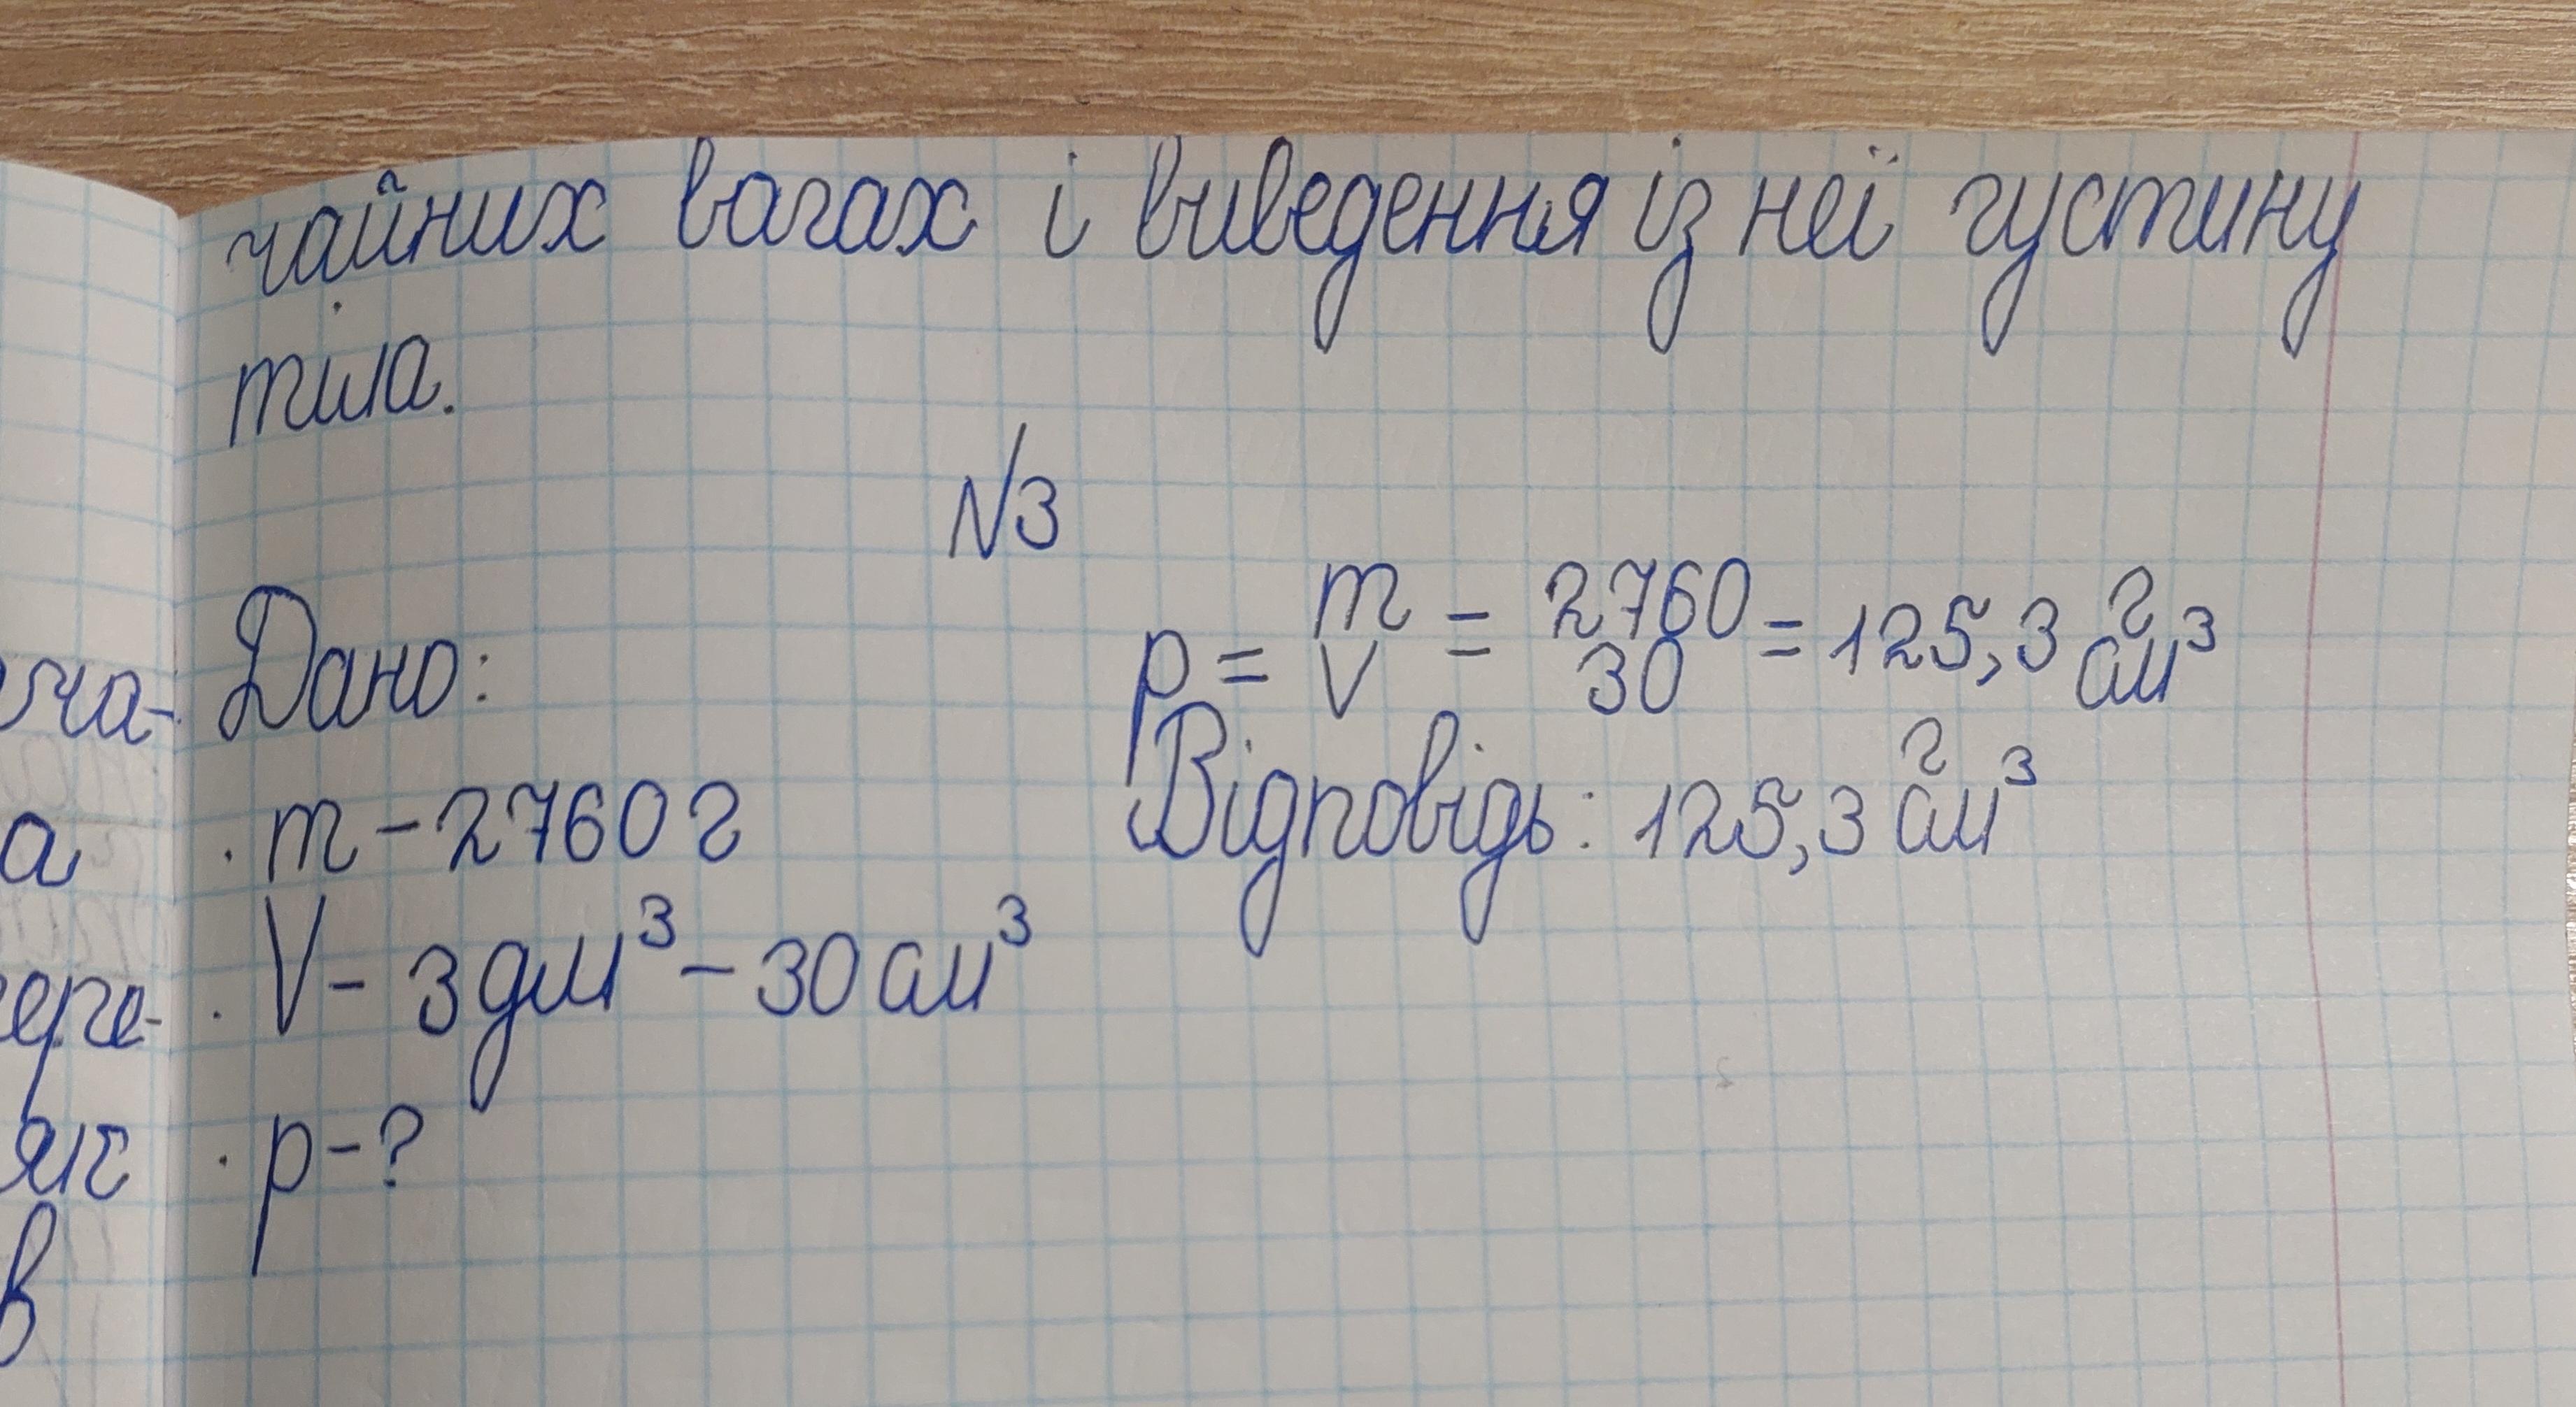 чайних вагах і виведення із неї густину
тіла.
№3
Дано:
m - 2760 г
V - 3 дм³ - 30 см³
p - ?
p = m/V = 2760/30 = 125,3 г/см³
Відповідь: 125,3 г/см³
ча-
а
ере-
як
в